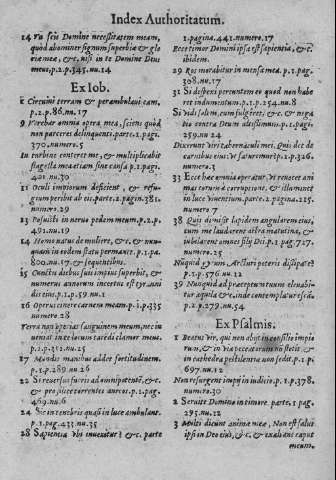 Index Authoritatum.
14 Tu scis Domine necessitatem meam,
quod abominer signum superbiæ & glo
riæ meæ, &c. nisi in te Domine Deus
meus, p.2. p.345. nu.14
Ex Iob.
1 Circuivi terram & perambulavi eam,
p.2. p.86. nu.17
9 Verebar omnia opera mea, sciens quod
non parceres delinquenti. parte.2. pagi.
370. numero.5
In turbine conteret me, & multiplicabit
plagas meas etiam sine causa p.1. pagi.
421. nu.30
11 Oculi impiorum deficient, & refu-
gium peribit ab eis. parte.2. pagin.381.
numero.29
13 Posuisti in nervo pedem meum, p.2. p.
491. nu.19
14 Homo natus de muliere, &c. & nun-
quam in eodem statu permanet. p.1. pa.
800. nu.17. & sequentibus.
15 Cunctis diebus suis impius superbit, &
numerus annorum incertus est tyranni
dis eius, p.1. p.59. nu.1
16 Operui cinere carnem meam p.1. p.335
numero.28
Terra non operias sanguinem meum, nec in
veniat in te locum tacendi clamor meus.
p.1. p.312. nu.25
17 Mundis manibus addet fortitudinem.
p.1. p.289. nu.26
22 Si reversus fueris ad omnipotentem, &c.
& pro silice torrentes aureos. p.2. pag.
469. nu.6
24 Sic in tenebris quasi in luce ambulant.
p.1. pag.433. nu.35
28 Sapientia ubi invenitur? &c. parte
2. pagina.441. numero.17
Ecce timor Domini ipsa est sapientia, &c.
ibidem.
29 Ros morabitur in messe mea. p.1. pag.
308. nu.17
31 Si despexi pereuntem eo quod non habe
ret indumentum. p.1. p.254. nu.8
Si vidi solem, cum fulgeret, &c. & nega
vi contra Deum altissimum. p.1. pagi.
259. nu.24
Dixerunt viri tabernaculi mei, Quis det de
carnibus eius ut saturemur? p.2. p.326.
numero.1
33 Ecce hæc omnia operatur, ut revocet ani
mas eorum à corruptione, & illuminet
in luce viventium. parte.2. pagina.225.
numero.7
38 Quis dimisit lapidem angularem eius,
cum me laudarent astra matutina, &
iubilarent omnes filij Dei. p.1. pag.727.
numero.25
Nunquid gyrum Arcturi poteris dissipare?
p.1. p.576. nu.12
39 Nunquid ad præceptum tuum eleuabi-
tur aquila &c. inde contemplatur escã.
p.2. p.279. nu.54
Ex Psalmis.
1 Beatus vir, qui non abijt in consilio impio
rum, & in via peccatorum nõ stetit, &
in cathedra pestilentiæ non sedit. p.1. p.
697. nu.12
Non resurgent impij in iudicio. p.1. p.378.
numero.30
2 Servite Domino in timore. parte.1. pag.
295. nu.12
3 Multi dicunt animæ meæ, Non est salus
ipsi in Deo eius, &c. & exaltans caput
meum.